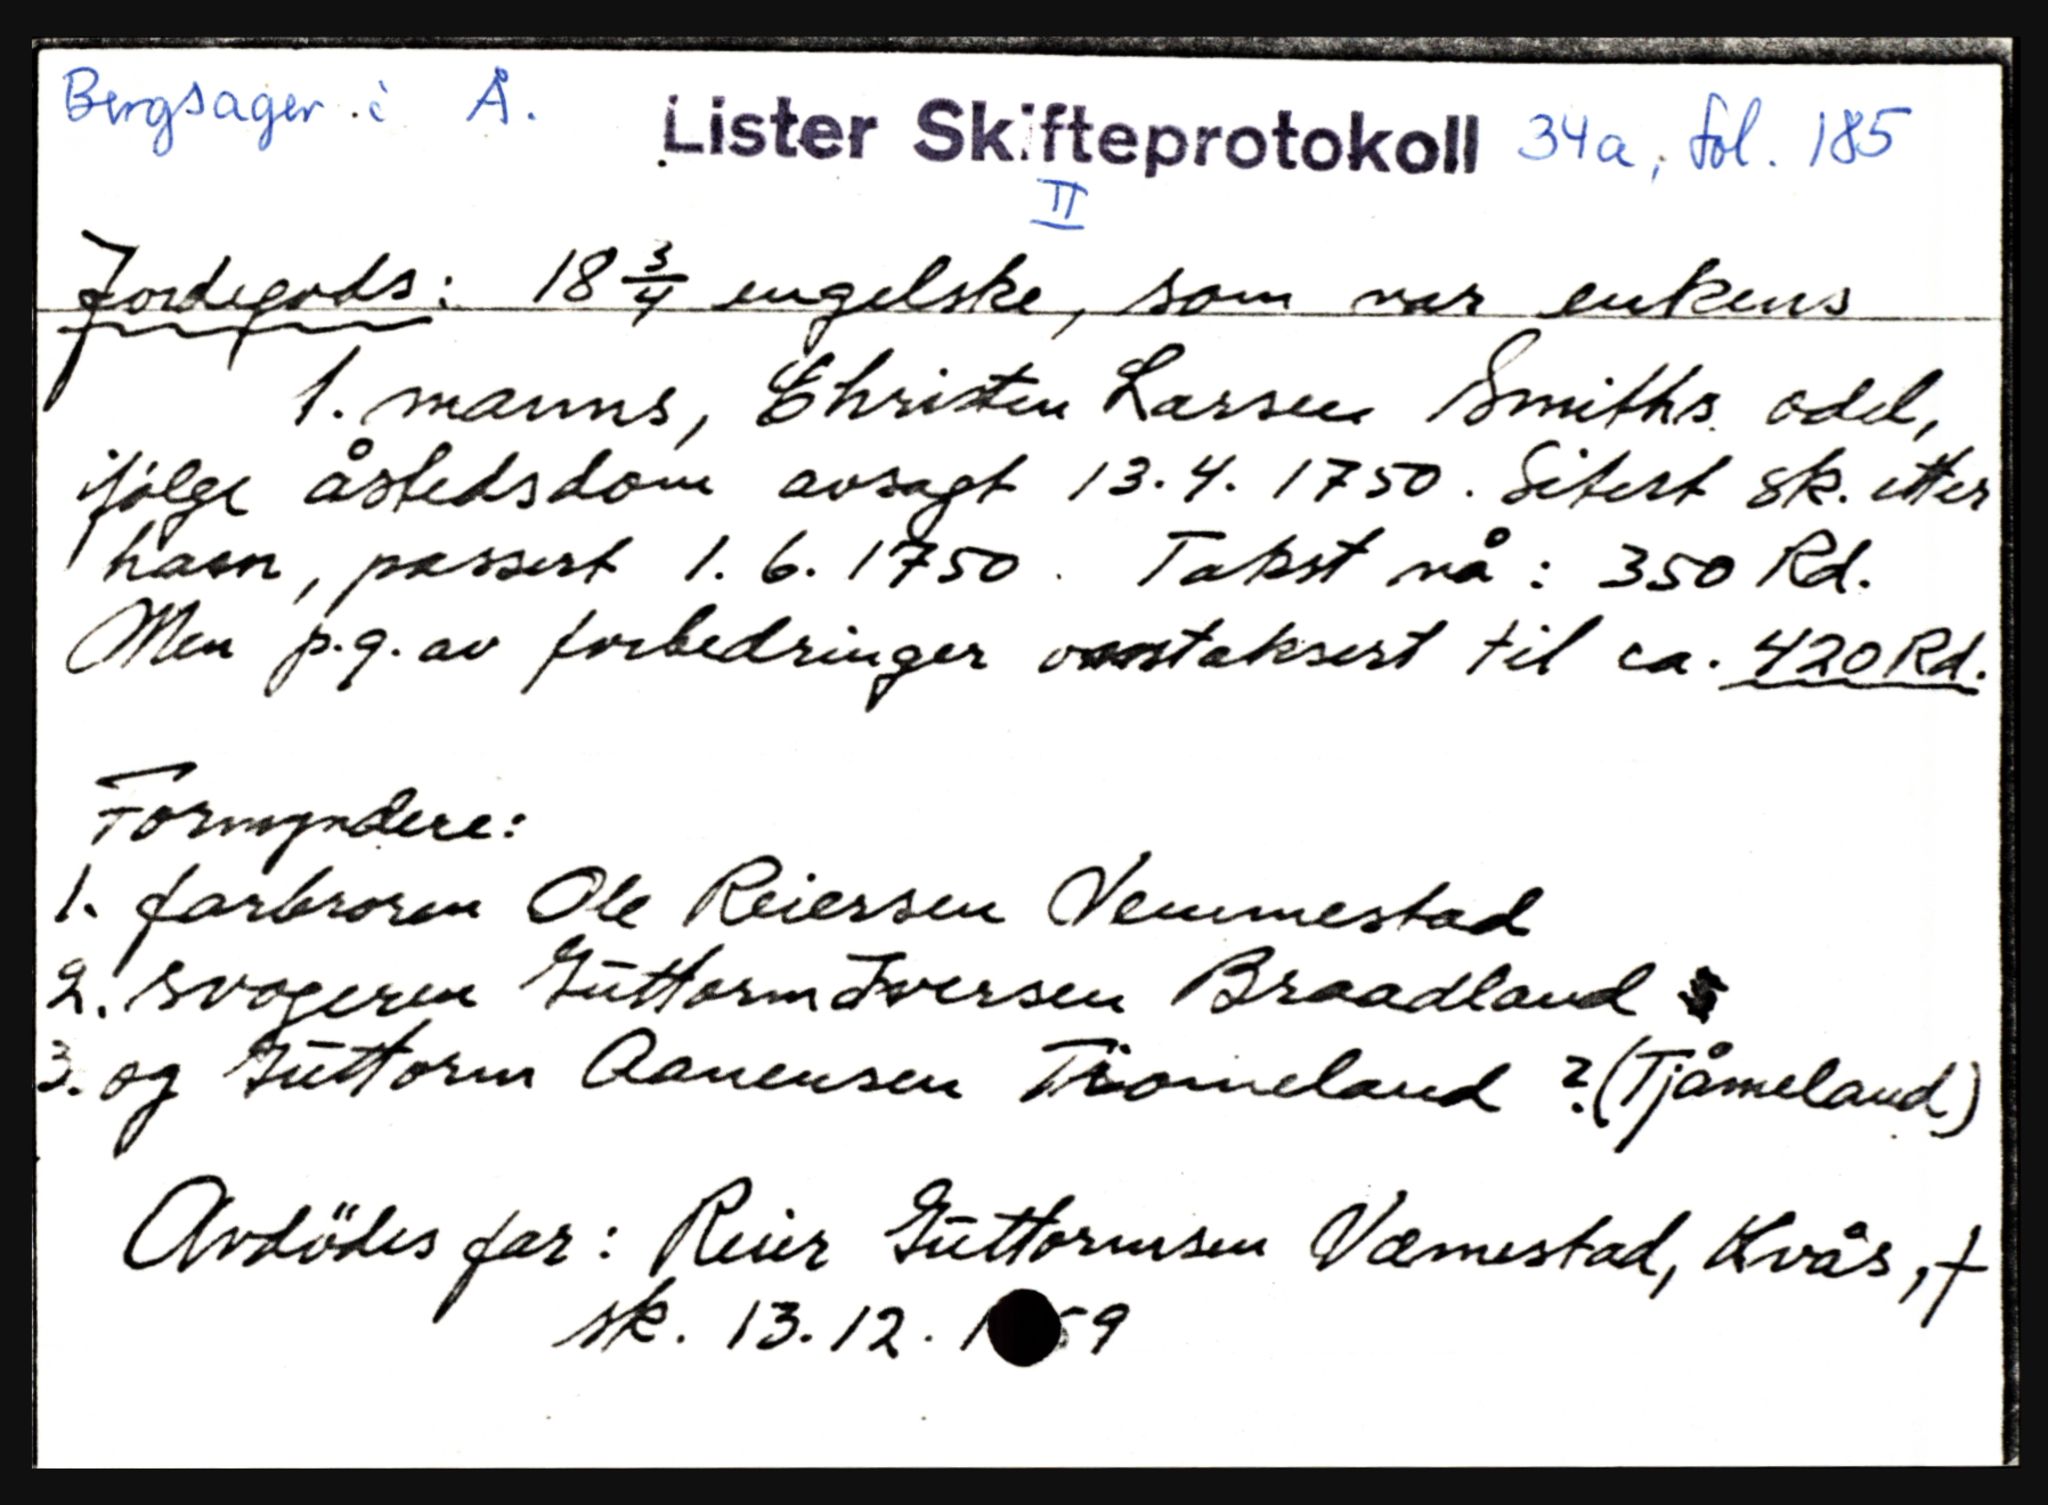 Bergsager i Å. Lister Skifteprotokoll 34a, fol. 185
II
Jordegods: 18 3/4 engelske, som var enkens
1. manns, Christen Larsen Smiths odel,
ifølge åstedsdom avsagt 13.4.1750. Sitert sk. etter
ham, passert 1.6.1750. Takst nå: 350 Rd.
Men p.g.av forbedringer taksert til ca. 420 Rd.
Formyndere:
1. farbroren Ole Reiersen Vemmestad
2. svogeren Guttorm Iversen Braadland
3. og Guttorm Aanensen Tiomeland ? (Tjåmeland)
Avdödes far: Reier Guttormsen Væmestad, Kvås, †
sk. 13.12. 1 59